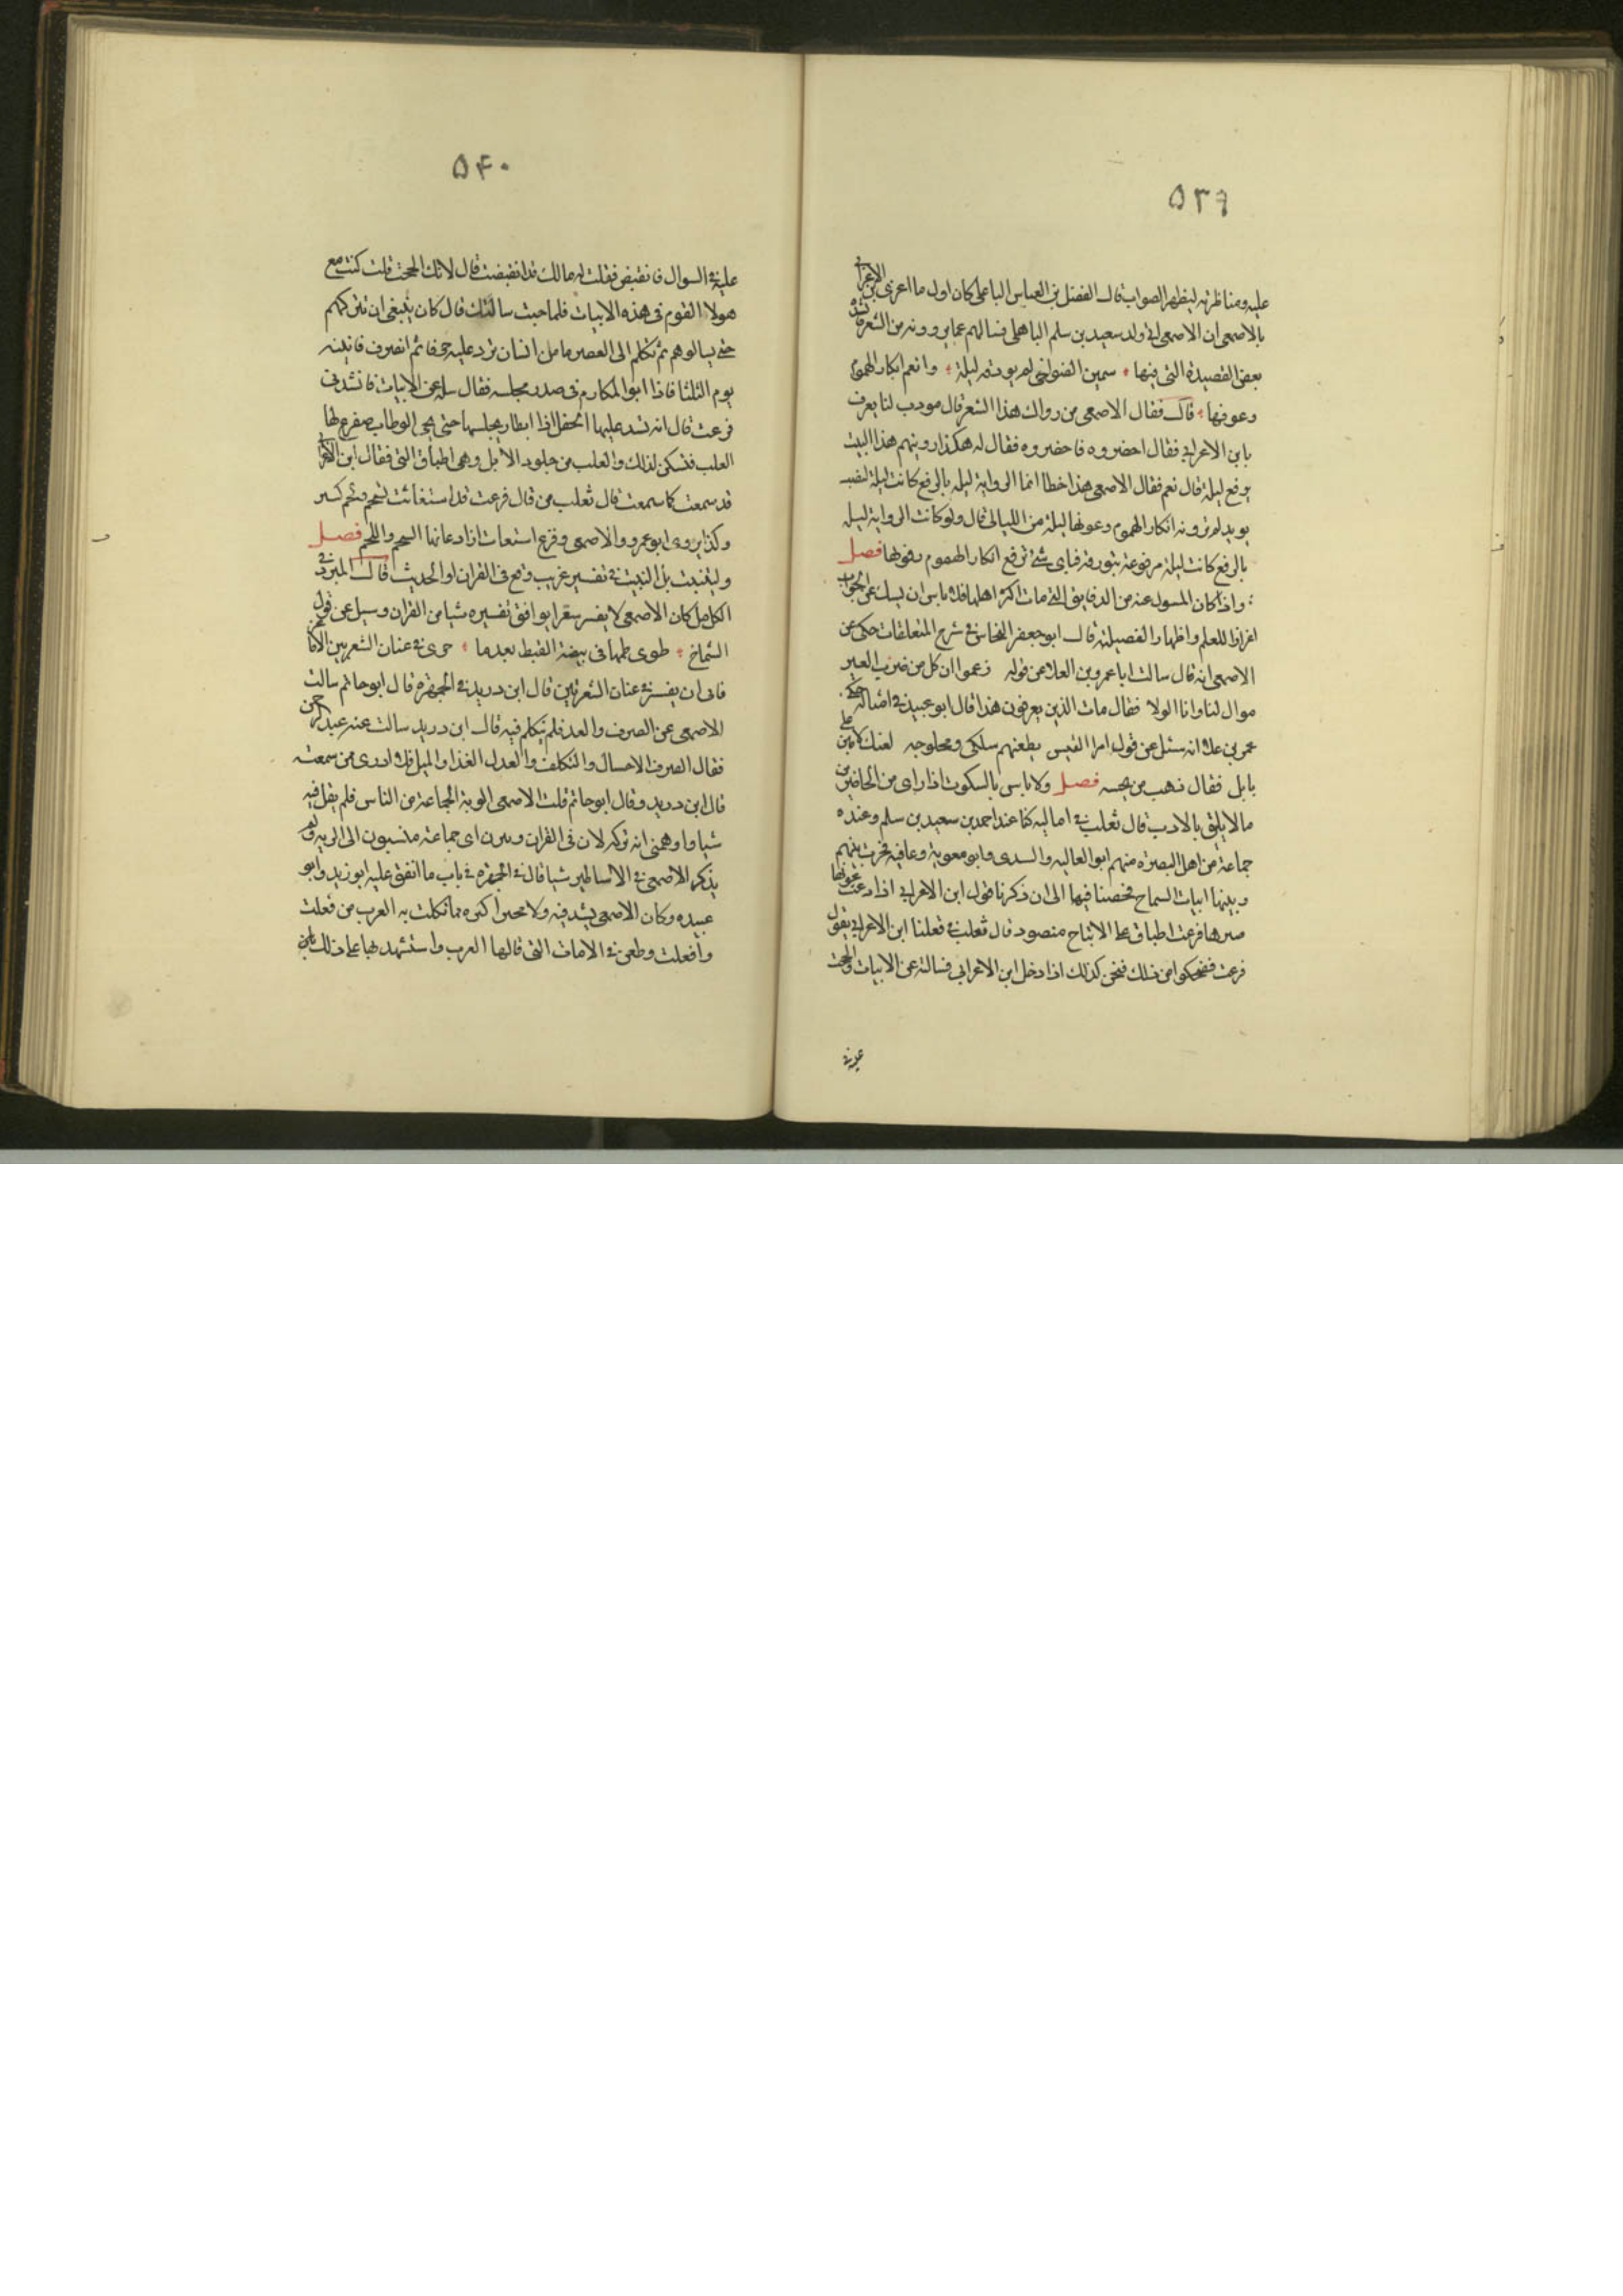 ۵۳۹
عليه ومناظرته ليظهر الصواب قال الفضل بن العباس الباهلى كان اول ما اغرى بن الاعرابى
بالاصمعى ان الاصمعى اتى ولد سعيد بن سلم الباهلى فسالهم عما يروونه من الشعر فانشده
بعض القصيدة التى فيها سمين الضواحى لم يورقه ليلة وانعم ابكار الهموم
وعونها قال فقال الاصمعى من رواك هذا الشعر قال مودب لنا يعرف
بابن الاعرابى فقال احضروه فاحضروه فقال له هكذا رويتهم هذا البيت
برفع ليلة قال نعم فقال الاصمعى هذا خطا انما الرواية ليله بالرفع كانت ليلة لنصب
يريد لم تورقه ابكار الهموم وعونها ليلة من الليالى قال ولو كانت الرواية ليله
بالرفع كانت ليلة مرفوعة بتورقه فباى شئ ترفع ابكار الهموم وعونها فصل
واذا كان المسول عنه من الدقايق التى مات اكثر اهلها فلا باس ان يسكت عن الجواب
اعزازا للعلم واظهارا لفضيلته قال ابو جعفر النحاس فى شرح المعلقات حكى عن
الاصمعى انه قال سالت ابا عمرو بن العلا عن قوله زعموا ان كل من ضرب العير
موال لنا وانا الولا فقال مات الذين يعرفون هذا قال ابو عبيد فى امثاله حكى
عمر بن علا انه سئل عن قول امرا القيس يطعنهم سلكى ومخلوجه لفتك لامين على
بابل فقال ذهب من يحسه فصل ولا باس بالسكوت اذا راى من الحاضرين
ما لا يليق بالادب قال ثعلب فى اماليه كنا عند احمد بن سعيد بن سلم وعنده
جماعة من اهل البصرة منهم ابو العاليه والسدى وابو معوية وعافيه فجرت بينهم
وبينها ابيات الشماخ فخضنا فيها الى ان ذكرنا قول ابن الاعرابى اذا دعت غوثها
ضرها فزعت اطباق على الاثباج منضود قال ثعلب فقلنا ابن الاعرابى يقول
فزعت فضحكوا من ذلك فنحن كذلك اذا دخل ابن الاعرابى فسالته عن الابيات والححت
عليه فى
۵۴۰
عليه فى السوال فانقبض فقلت له مالك قد انقبضت قال لانك الححت قلت كنت مع
هولا القوم فى هذه الابيات فلما جيت سالتك قال كان ينبغى ان تتركهم
حتى يسالوهم ثم تكلم الى العصر ما من انسان يرد عليه حرفا ثم انصرف فاتيته
يوم الثلثا فاذا ابو المكارم فى صدر مجلسه فقال سله عن الابيات فانشدنى
فزعت قال انه تشد عليها الحفل اذا ابطا محلبها حتى يجى الوطاب صفرع لها
العلب فتسكن لذلك والعلب من جلود الابل وهى اطباق التى فقال ابن الاعرابى
قد سمعت كما سمعت قال ثعلب من قال فزعت قد استغاثت بشحم ولحم كسر
وكذا يروى ابو عمرو والاصمعى وفزع استغاث اراد عانها الشحم واللحم فصل
وليتثبت كل التثبت فى تفسير غريب وقع فى القران او الحديث قال المبرد فى
الكامل كان الاصمعى لا يفسر شعرا يوافق تفسيره شيا من القران وسيل عن قول
الشماخ طوى ظماها فى بيضة القيظ بعدما جرى فى عنان الشعريين الاماعز
فابى ان يفسر فى عنان الشعريين قال ابن دريد فى الجمهره قال ابو حاتم سالت
الاصمعى عن الصرف والعدل فلم يتكلم فيه قال ابن دريد سالت عنه عبد الرحمن
فقال الصرف الاحتيال والتكلف والعدل الفدا والميل فلا ادرى ممن سمعته
قال ابن دريد وقال ابو حاتم قلت للاصمعى الربة الجماعة من الناس فلم يقل فيه
شيا واوهمنى انه تركه لان فى القران ربيون اى جماعة منسبون الى الربه ولم
يذكر الاصمعى فى الاساطير شيا قال فى الجمهره فى باب ما اتفق عليه ابو زيد وابو
عبيده وكان الاصمعى يشدد فيه ولا يجيز اكثره مما تكلمت به العرب من فعلت
وافعلت وطعن فى الابيات التى قالها العرب واستشهد بها على ذلك